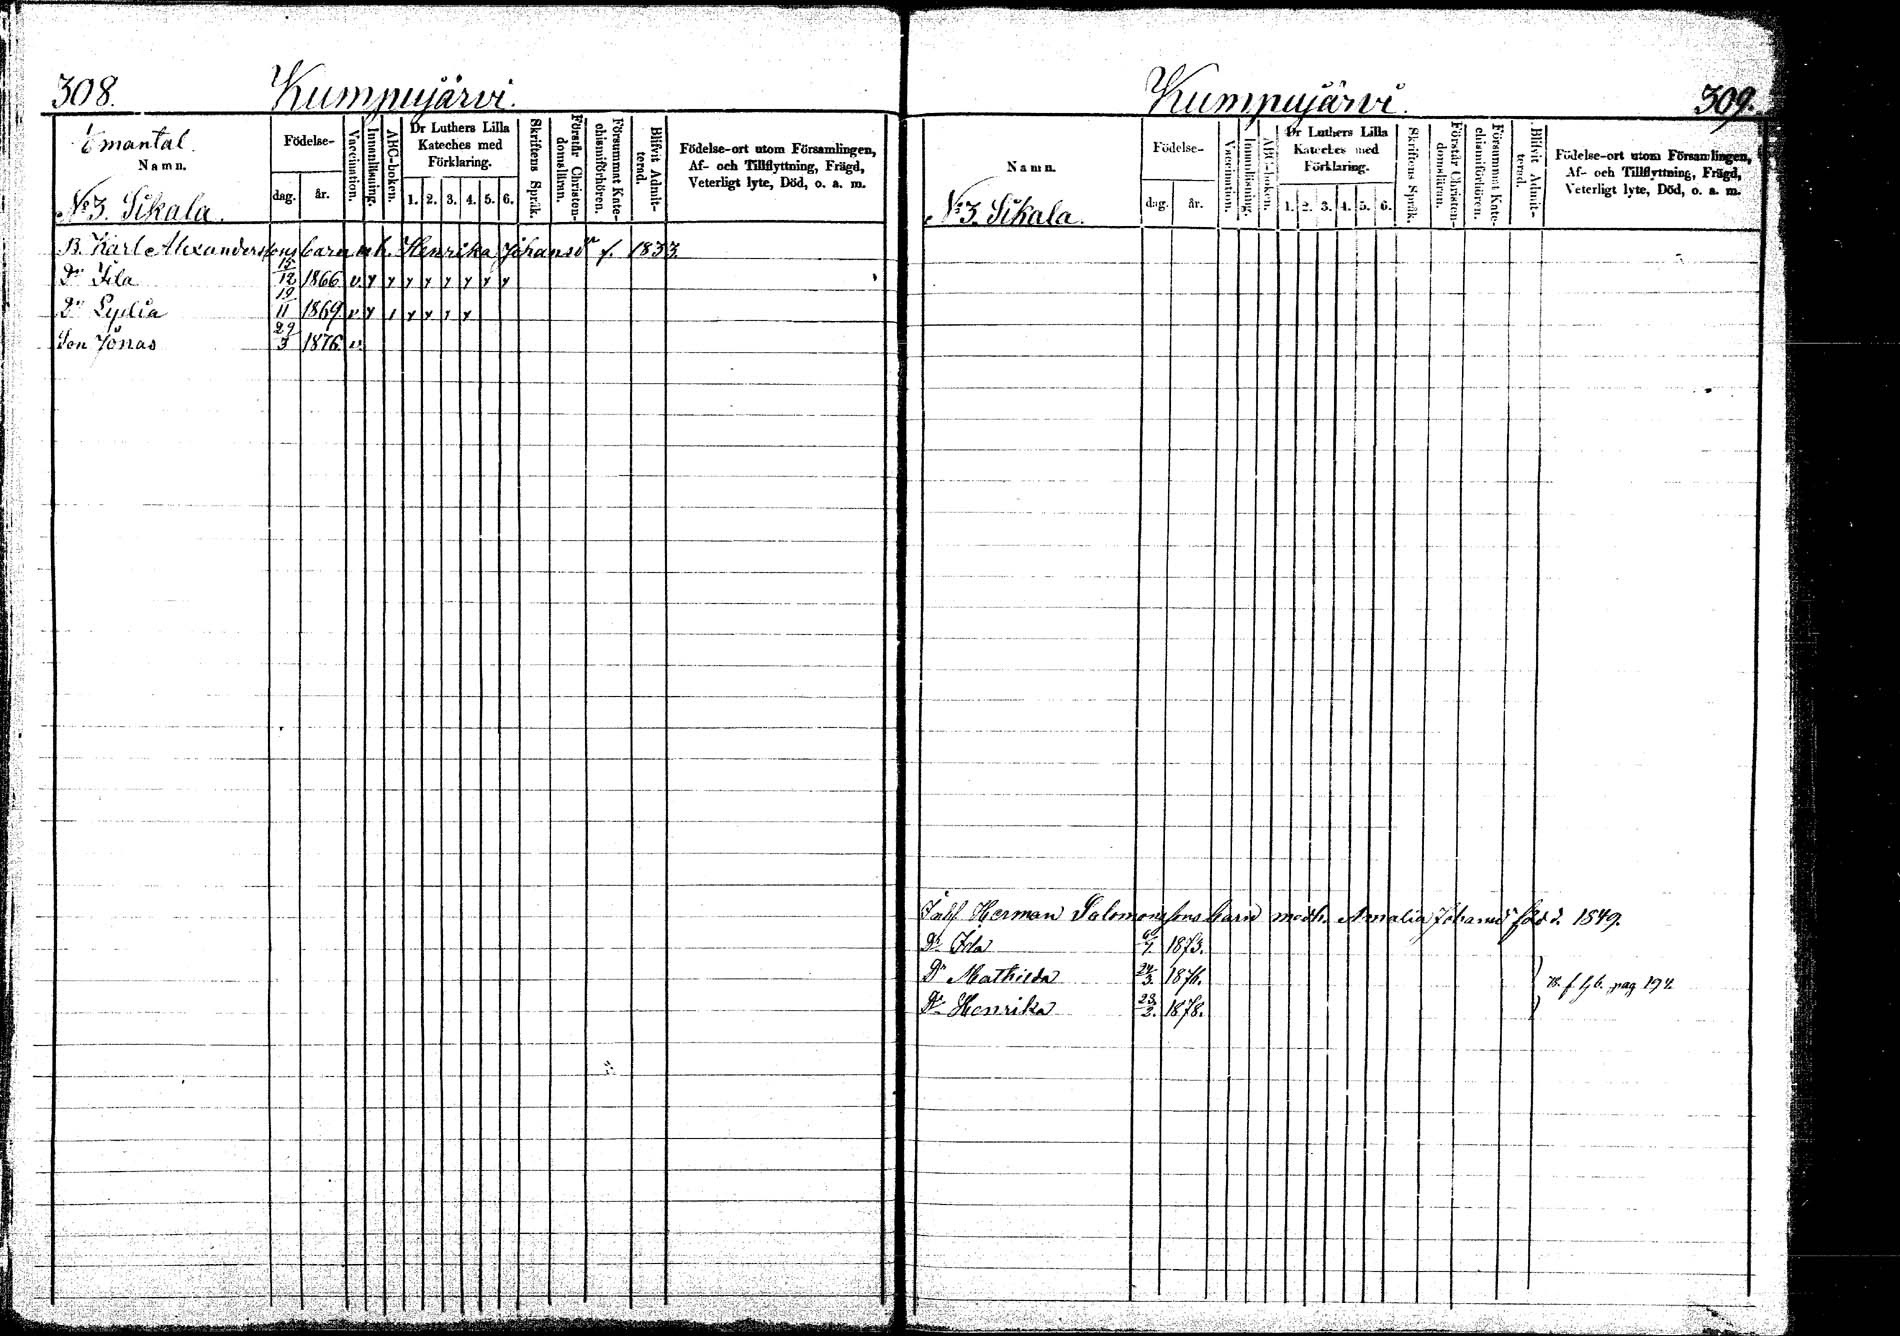 308. Kumpujärvi.
mantal.
Namn.
Födelse-
dag.
år.
Vaccination.
Innanläsning.
ABC-boken.
Dr Luthers Lilla
Kateches med
Förklaring.
1. 2. 3. 4. 5. 6.
Skriftens Språk.
Förstår Christen-
domsläran.
Försummat Kate-
chismiförhören.
Blifvit Admit-
terad.
Födelse-ort utom Församlingen,
Af- och Tillflyttning, Frägd,
Veterligt lyte, Död, o. a. m.
No 3. Sikala.
B. Karl Alexanderssons barn m h. Henrika Johansdr f. 1833.
Dr Ida 15/12 1866 v y y y y y y y y
Dr Lydia 19/11 1869 v y y y y y y
Son Jonas 29/3 1876. v.
Kumpujärvi. 309.
Namn.
Födelse-
dag.
år.
Vaccination.
Innanläsning.
ABC-boken.
Dr Luthers Lilla
Kateches med
Förklaring.
1. 2. 3. 4. 5. 6.
Skriftens Språk.
Förstår Christen-
domsläran.
Försummat Kate-
chismiförhören.
Blifvit Admit-
terad.
Födelse-ort utom Församlingen,
Af- och Tillflyttning, Frägd,
Veterligt lyte, Död, o. a. m.
No 3. Sikala.
Herman Salomonssons barn med h. Amalia Johansdr född 1849.
Dr Ida 1873.
Dr Mathilda 24/3. 1876.
Dr Henrika 23/2. 1878.
pag 194.